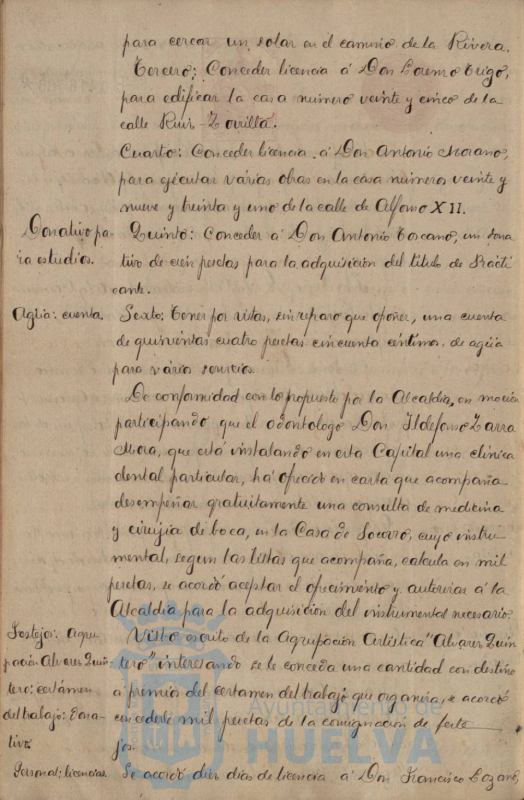 para cercar un solar en el camino de la Rivera.
Tercero: Conceder licencia á Don Lorenzo Trigo,
para edificar la casa número veinte y cinco de la
calle Ruiz-Zorrilla.
Cuarto: Conceder licencia á Don Antonio Morano,
para ejecutar varias obras en la casa números veinte y
nueve y treinta y uno de la calle de Alfonso XII.
Donativo pa-
ra estudios.
Quinto: Conceder á Don Antonio Toscano, un dona
tivo de cien pesetas para la adquisición del titulo de Practi
cante.
Aguas: cuenta.
Sexto: Tener por vistas, sin reparo que oponer, una cuenta
de quinientas cuatro pesetas cincuenta céntimos, de agua
para varios servicios.
De conformidad con lo propuesto por la Alcaldía, en moción
participando que el odontólogo Don Ildefonso Zarra
Mora, que está instalando en esta Capital una clinica
dental particular, ha ofrecido en carta que acompaña
desempeñar gratuitamente una consulta de medicina
y cirujia de boca, en la Casa de Socorro, cuyo instru
mental, segun las listas que acompaña, calcula en mil
pesetas, se acordó aceptar el ofrecimiento y autorizar á la
Alcaldia para la adquisición del instrumental necesario.
Festejos: Agru-
pación Alvarez Quin-
tero: certámen
del trabajo: Dona-
tivo.
Visto escrito de la Agrupación Artística "Alvarez Quin
tero" interesando se le conceda una cantidad con destino
a premio del certamen del trabajo que organiza, se acordó
concederle mil pesetas de la consignación de feste
jos.
Personal; licencias.
Se acordó diez dias de licencia á Don Francisco Lozano,
Ayuntamiento de
HUELVA